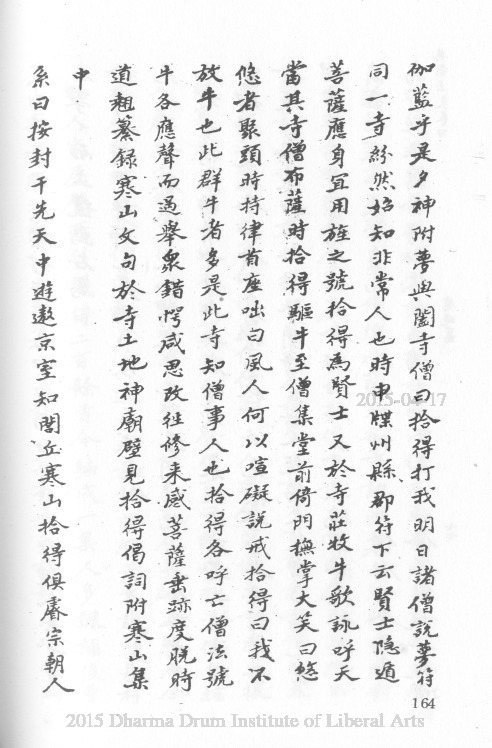 伽藍乎是夕神附夢與闔寺僧曰拾得打我明日諸僧說夢符
同一寺紛然始知非常人也時申牒州縣郡符下云賢士隱遁
菩薩應身宜用旌之號拾得為賢士又於寺莊牧牛歌詠呼天
當其寺僧布薩時拾得驅牛至僧集堂前倚門撫掌大笑曰悠
悠者聚頭時持律首座咄曰風人何以喧礙說戒拾得曰我不
放牛也此群牛者多是此寺知僧事人也拾得各呼亡僧法號
牛各應聲而過舉眾錯愕咸思改往修来感菩薩垂跡度脫時
道麁纂錄寒山文句於寺土地神廟壁見拾得偈詞附寒山集
中
系曰按封干先天中遊遨京室知閭丘寒山拾得俱睿宗朝人
164
2015-04-17
2015 Dharma Drum Institute of Liberal Arts